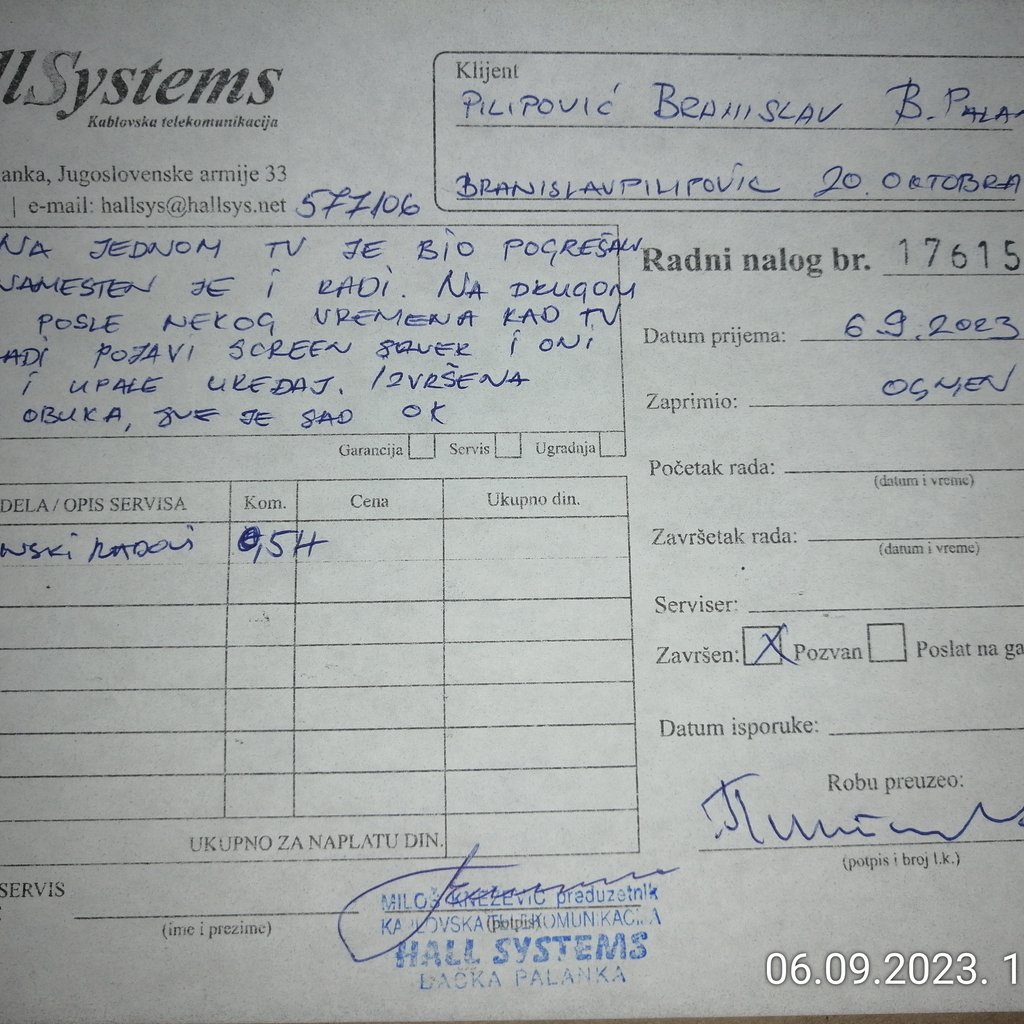 llSystems
Kablovska telekomunikacija
anka, Jugoslovenske armije 33
| e-mail: hallsys@hallsys.net 577/06
Klijent
PILIPOVIĆ BRANISLAV B. PALAN
BRANISLAVPILIPOVIC 20. OKTOBRA
NA JEDNOM TV JE BIO POGREŠAN
NAMESTEN JE I RADI. NA DRUGOM
POSLE NEKOG VREMENA KAD TV
ADI POJAVI SCREEN SAVER I ONI
I UPALE UREDAJ. IZVRŠENA
OBUKA, SVE JE SAD OK
Garancija Servis Ugradnja
Radni nalog br. 17615
Datum prijema: 6.9.2023
Zaprimio: OGNJEN
Početak rada:
(datum i vreme)
Završetak rada:
(datum i vreme)
Serviser:
Završen: X Pozvan Poslat na ga
Datum isporuke:
Robu preuzeo:
(potpis i broj l.k.)
DELA / OPIS SERVISA Kom. Cena Ukupno din.
NSKI RADOVI 0,5H
UKUPNO ZA NAPLATU DIN.
SERVIS
(ime i prezime)
(potpis)
MILOŠ KNEŽEVIĆ preduzetnik
KABLOVSKA TELEKOMUNIKACIJA
HALL SYSTEMS
BAČKA PALANKA
06.09.2023. 1